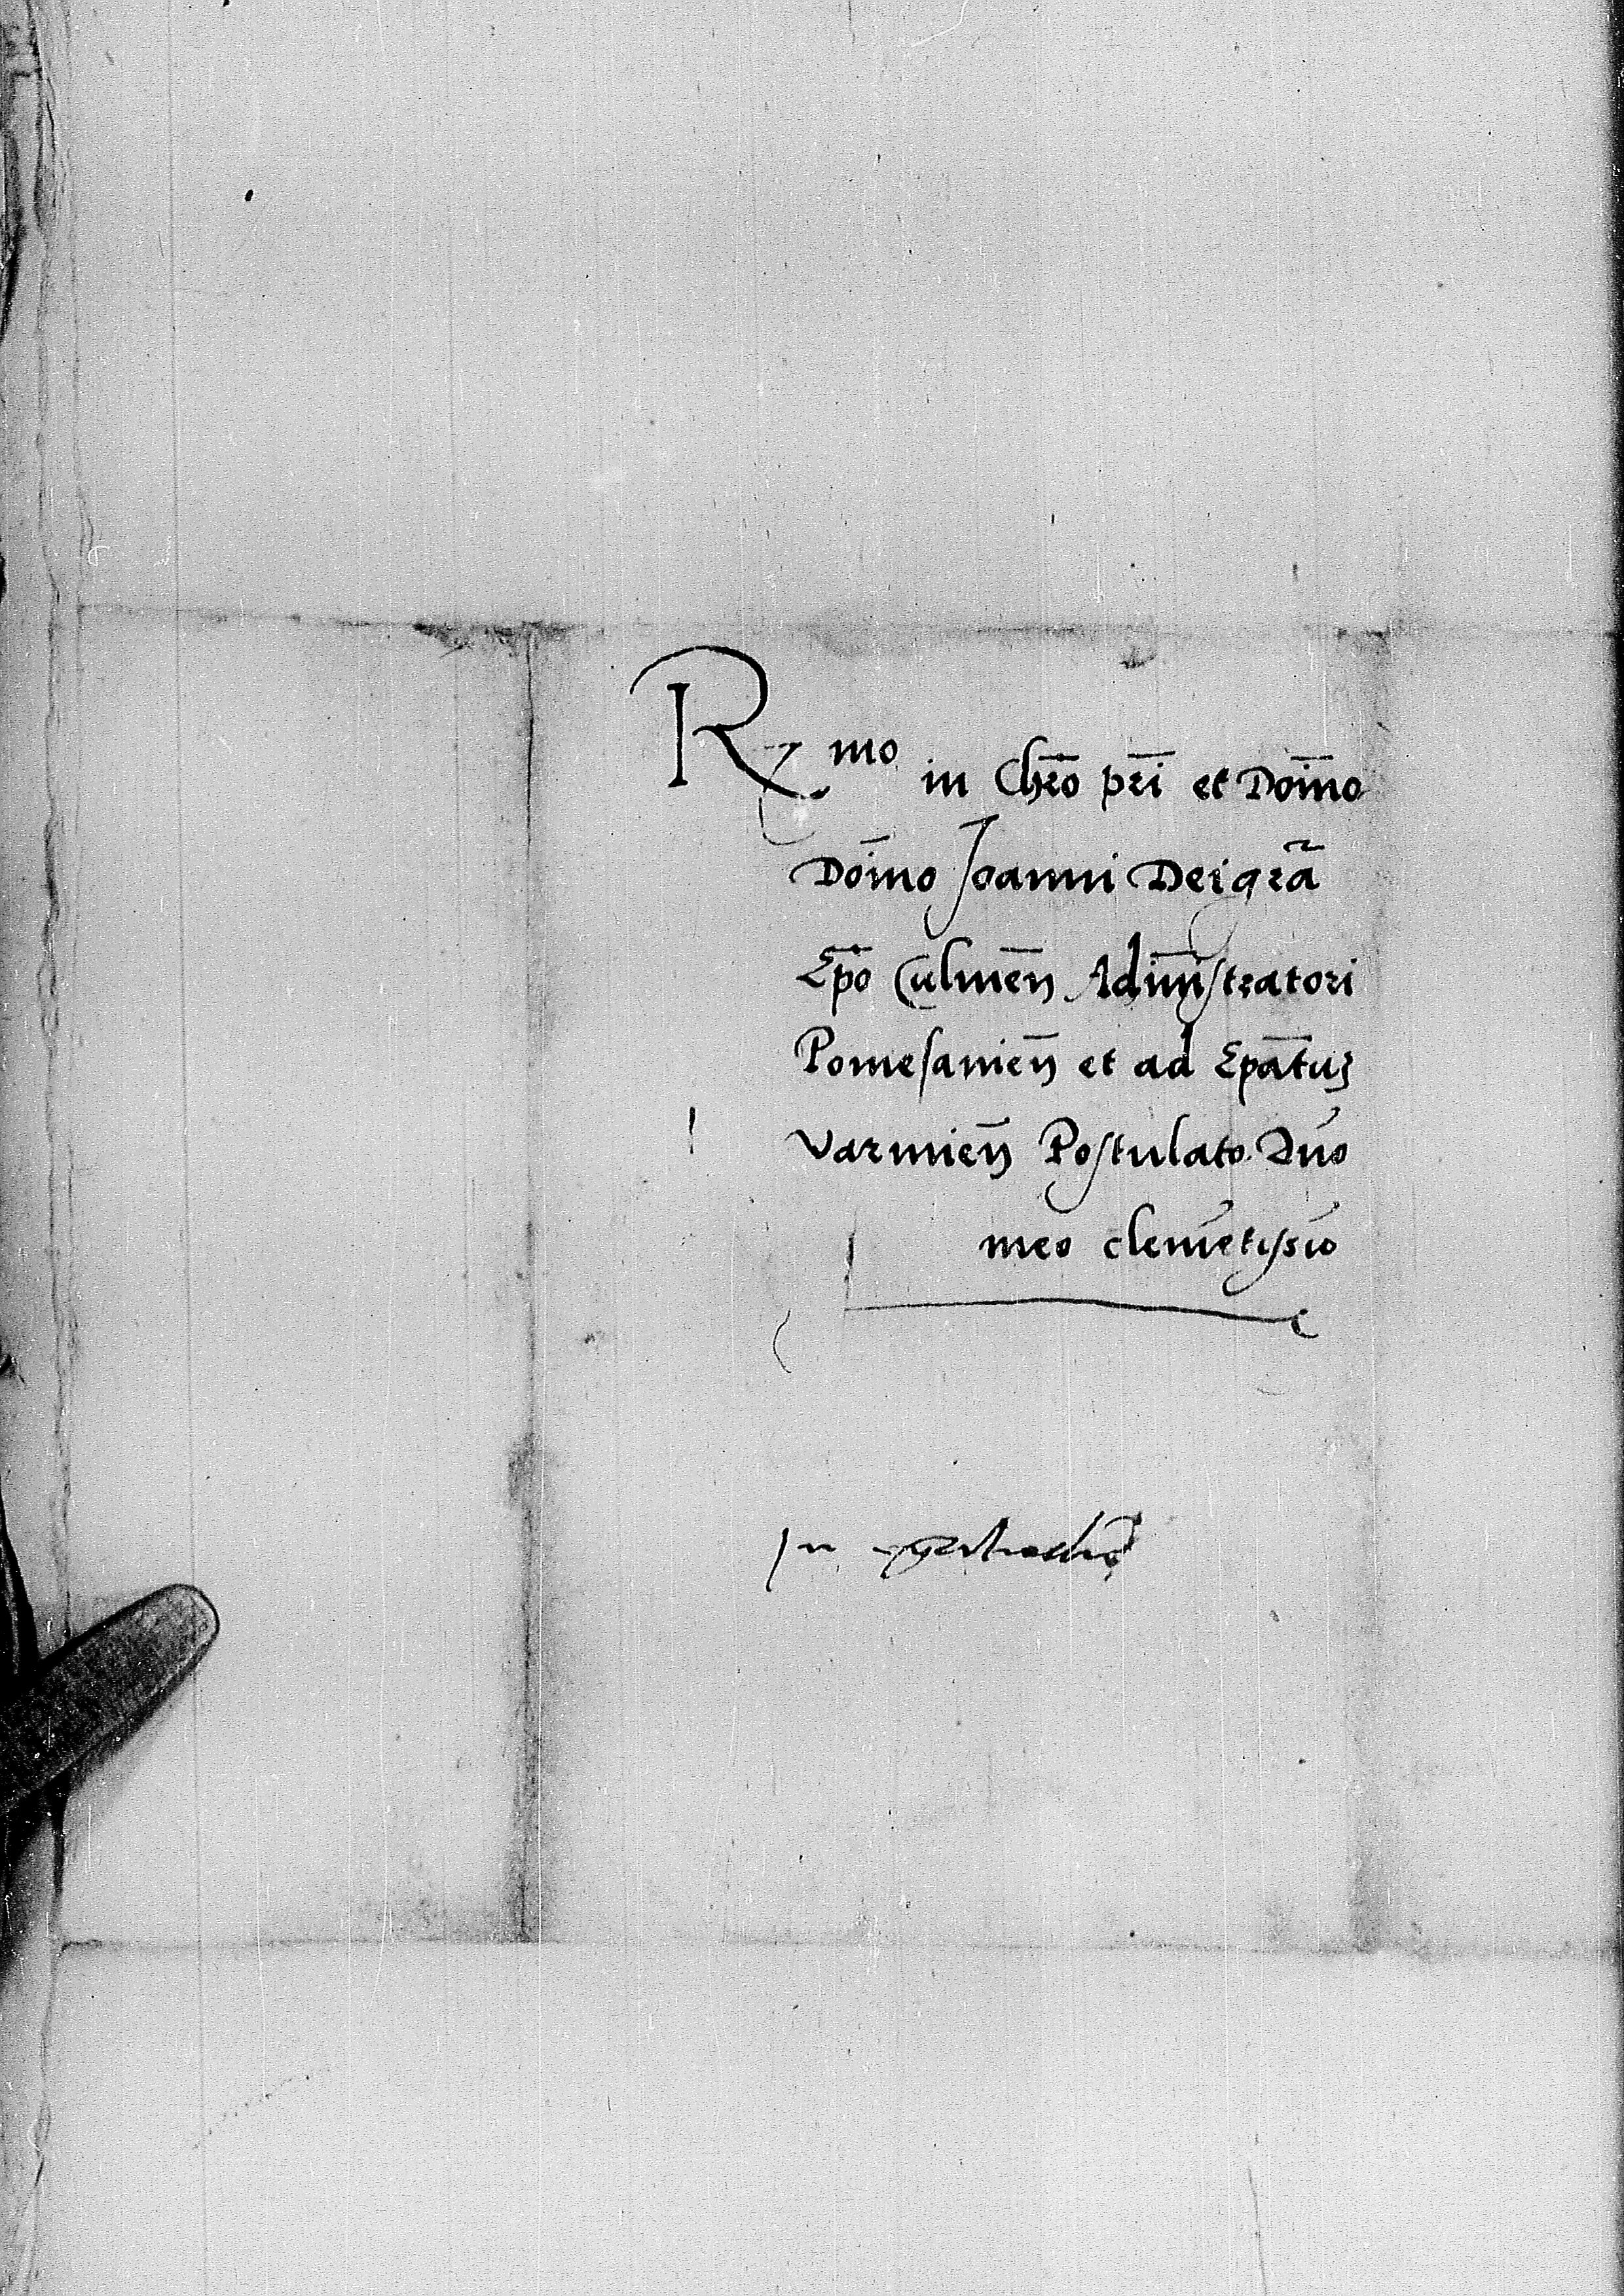 Rmo in Chro pri et Domno
Domno Joanni Dei gra
Epo Culmen Admistratori
Pomesanien et ad Epatuʒ
Varmien Postulato Dno
meo clemetissio
In